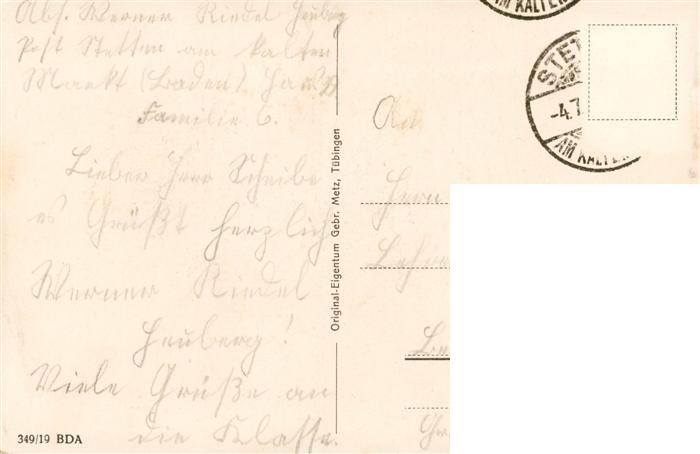 Abs. Werner Riedel Heuberg
Post Stetten am kalten
Markt (Baden). Haus
Familie 6.
Lieber Herr Scheibe
es Grüßt herzlich
Werner Riedel
Heuberg!
Viele Grüße an
die Klasse.
349/19 BDA
Original-Eigentum Gebr. Metz, Tübingen
AM KALTEN
STET
-4.7
AM KALTEN
An
Herrn